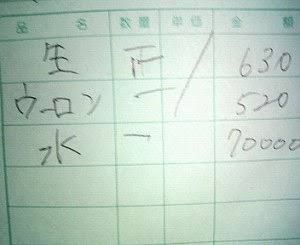 品 名 数 量 単 価 金 額
生 正 / 630
ウーロン 一 520
水 一 70000